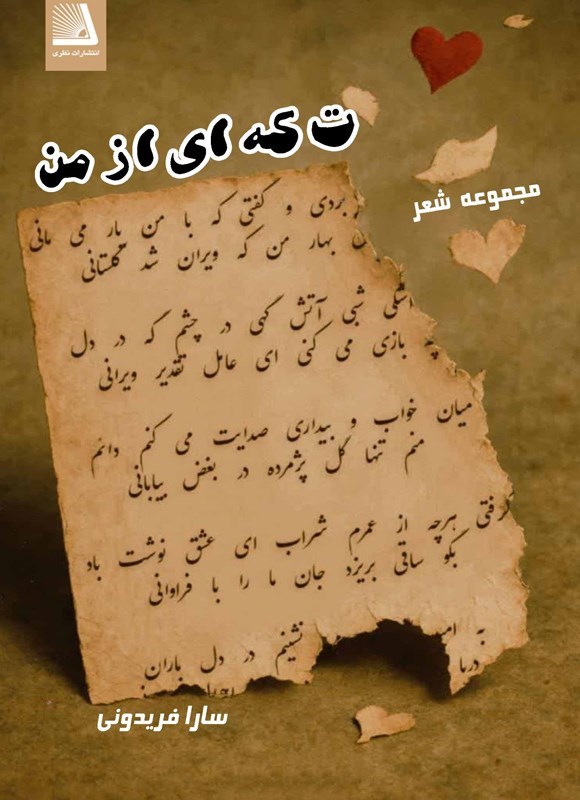 انتشارات نظری
ت که ای از من
مجموعه شعر
بردی و گفتی که با من یار می مانی
بهار من که ویران شد گلستانی
اشکی شبی آتش گهی در چشم گه در دل
چه بازی می کنی ای عامل تقدیر ویرانی
میان خواب و بیداری صدایت می کنم دانم
منم تنها گل پژمرده در بغض بیابانی
گرفتی هرچه از عمرم شراب ای عشق نوشت باد
بگو ساقی بریزد جان ما را با فراوانی
به نشینم در دل باران
دریا
سارا فریدونی